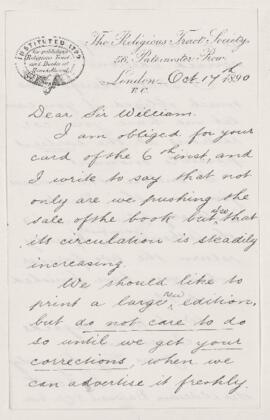 INSTITUTED 1799
for publishing
Religious Tracts
and Books at
The Religious Tract Society,
56, Paternoster Row,
London Oct 17th 1890
E.C.
Dear Sir William.
I am obliged for your
card of the 6th inst, and
I write to say that not
only are we pushing the
sale of the book but also
its circulation is steadily
increasing.
We should like to
print a large new edition,
but do not care to do
so until we get your
corrections, when we
can advertise it freshly.